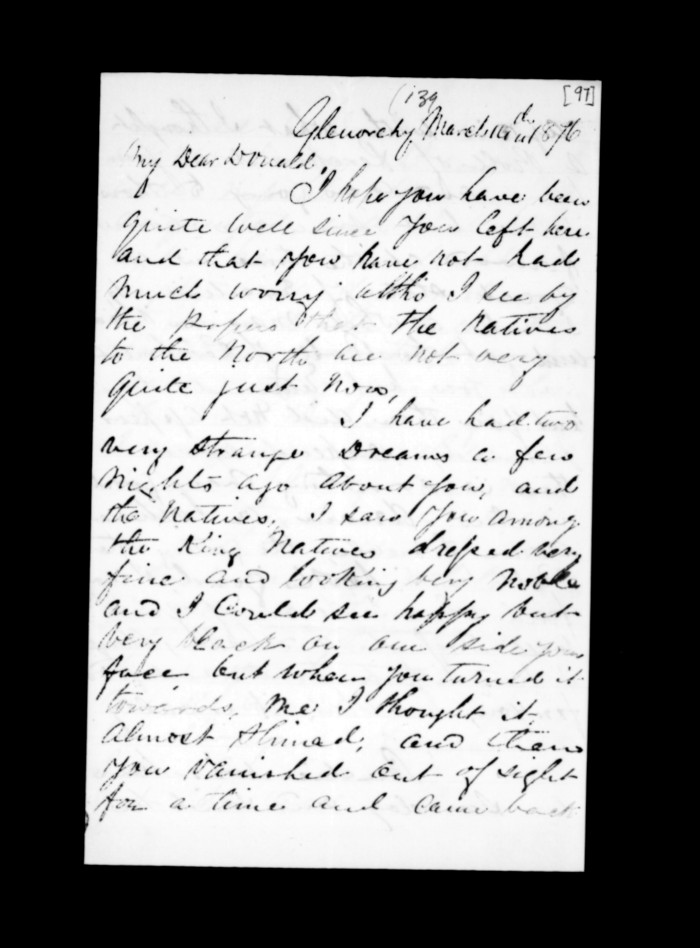 (139
[97]
Glenorchy March 10th 1876
My Dear Donald,
I hope you have been
quite well since you left here
and that you have not had
much worry altho I see by
the papers that the Natives
to the North are not very
quite just now,
I have had two
very strange Dreams a few
nights ago about you, and
the Natives, I saw you among
the King Natives dressed very
fine and looking very noble
and I could see happy but
very black on one side your
face but when you turned it
towards, me I thought it
almost shined, and then
you vanished out of sight
for a time and came back